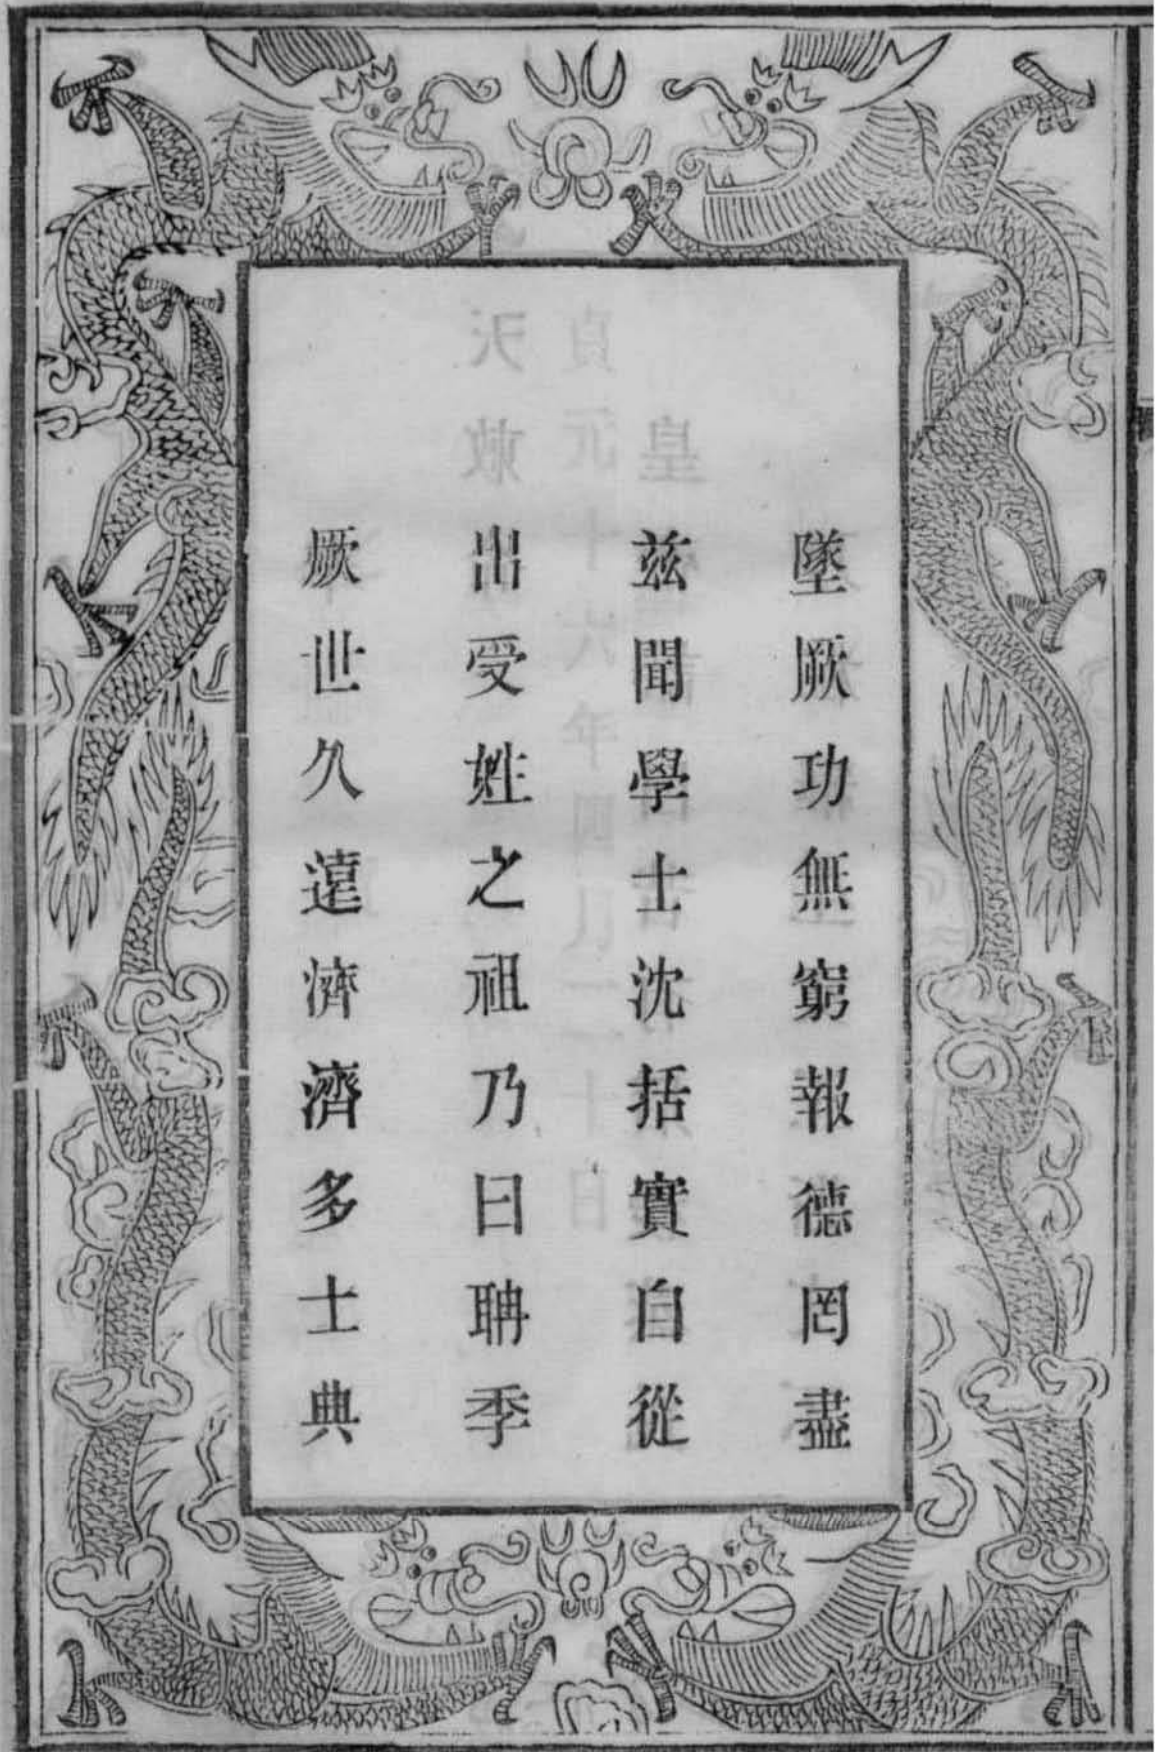 墜厥功無窮報徳罔盡
兹聞學士沈括實自從
出受姓之祖乃曰聃季
厥世久遠濟濟多士典